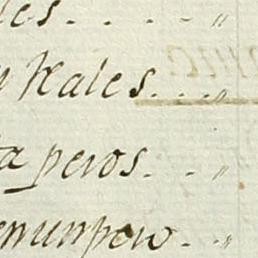 les. . . . - "
Kales. . . "
a peros. . - "
enunpow - . "